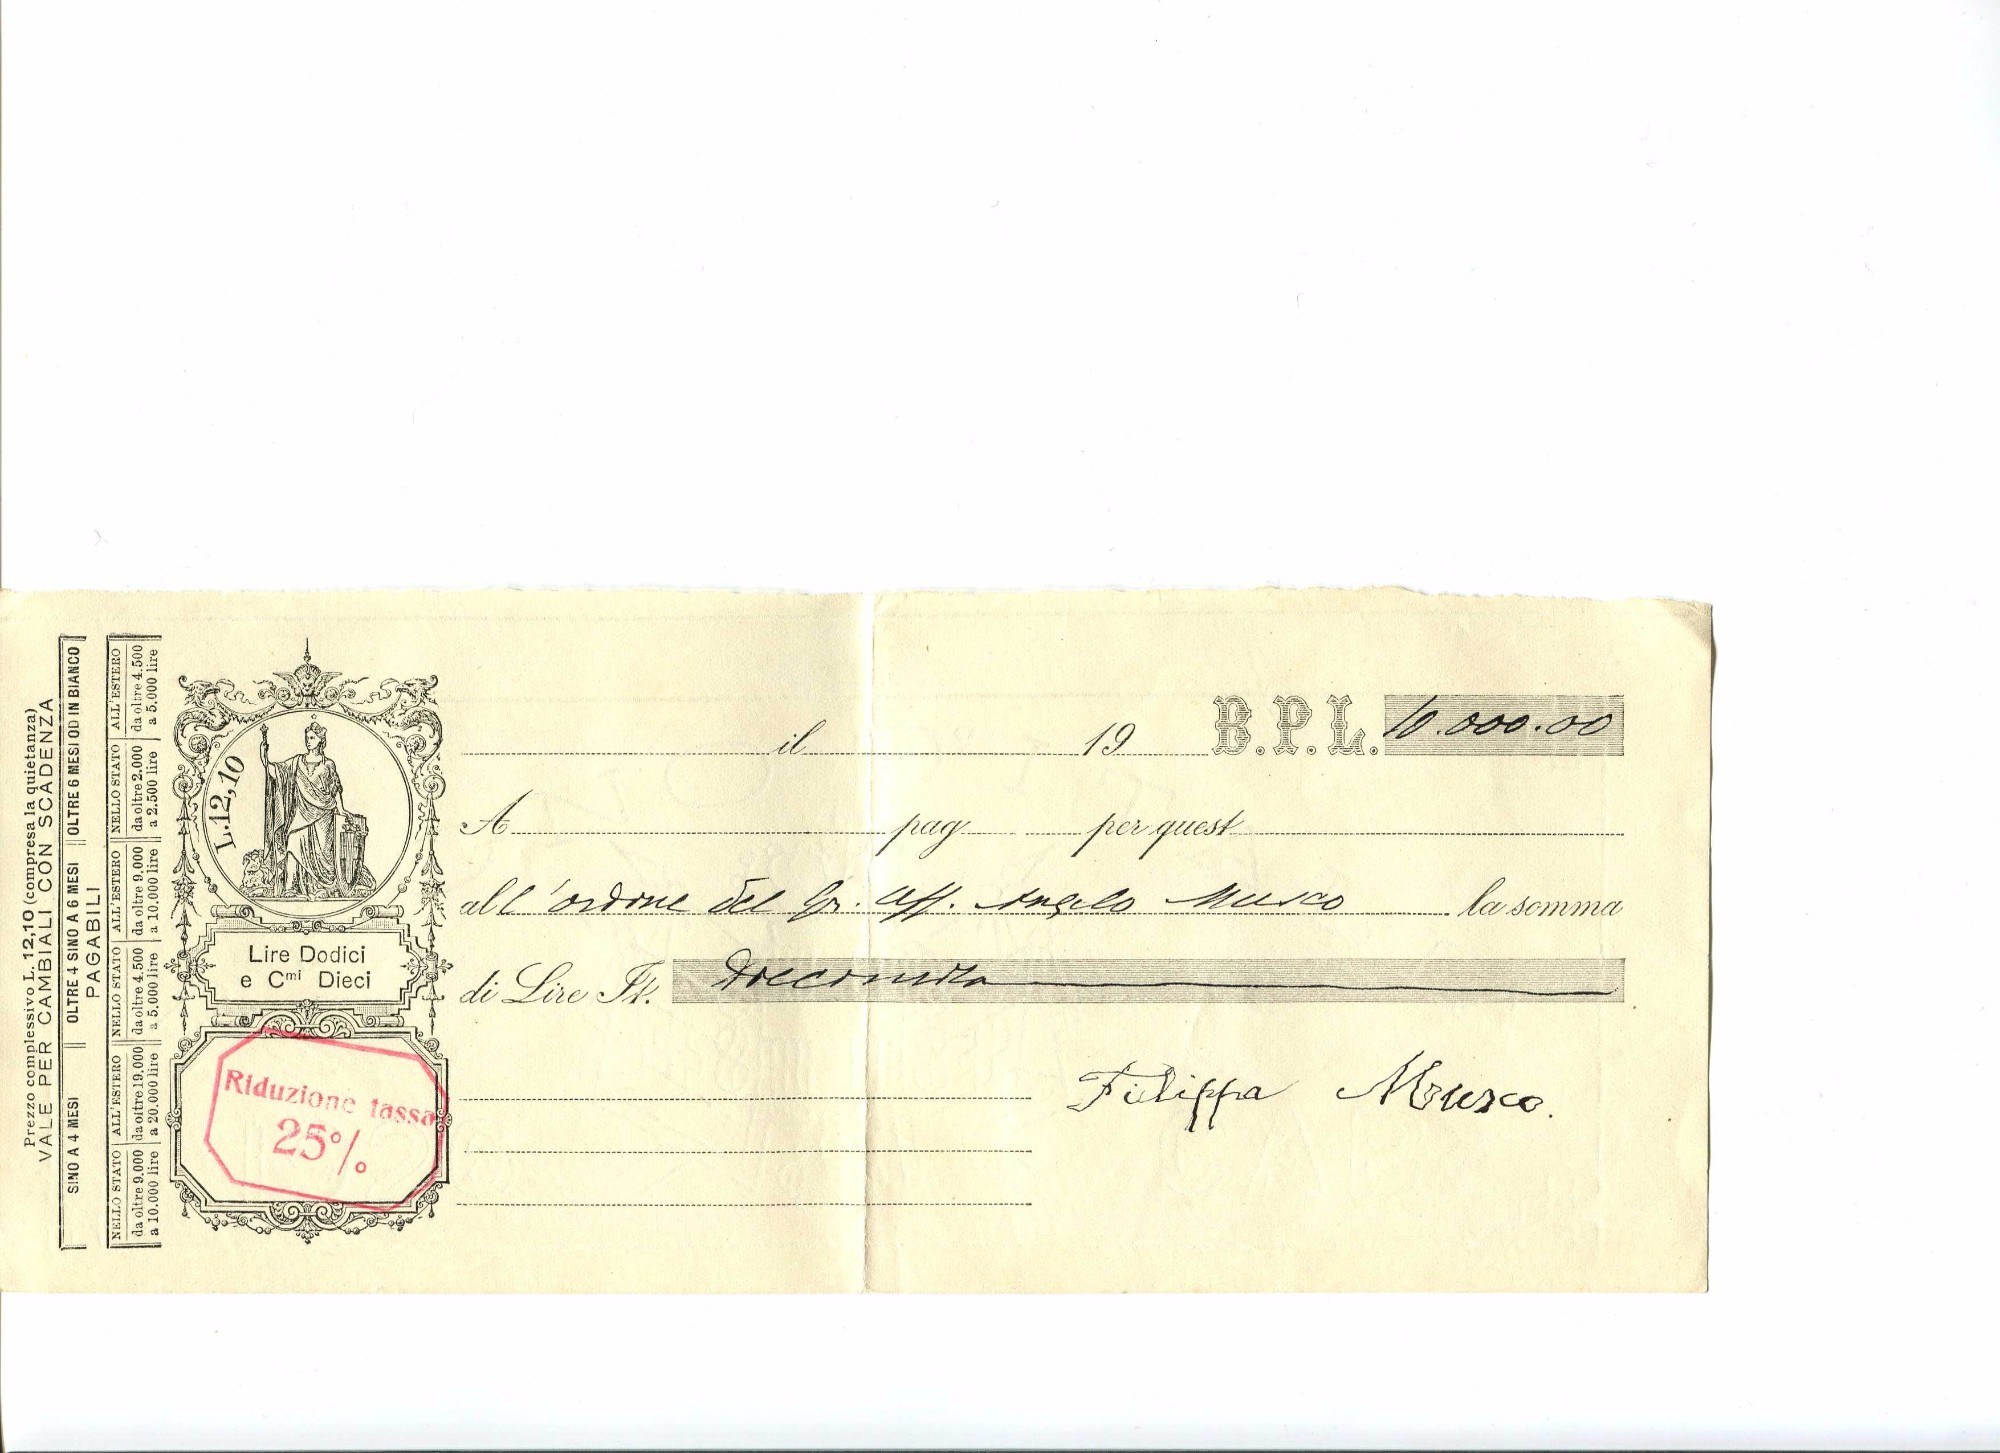 Prezzo complessivo L. 12,10 (compresa la quietanza)
VALE PER CAMBIALI CON SCADENZA
SINO A 4 MESI OLTRE 4 SINO A 6 MESI OLTRE 6 MESI OD IN BIANCO
PAGABILI
NELLO STATO ALL'ESTERO NELLO STATO ALL'ESTERO NELLO STATO ALL'ESTERO
da oltre 9.000 da oltre 19.000 da oltre 4.500 da oltre 9.000 da oltre 2.000 da oltre 4.500
a 10.000 lire a 20.000 lire a 5.000 lire a 10.000 lire a 2.500 lire a 5.000 lire
L.12,10
Lire Dodici
e Cmi Dieci
Riduzione tassa
25%
il 19 B.P.L. 10.000.00
A pag per quest
all'ordine del Gr. Uff. Angelo Musco la somma
di Lire It. Diecimila
Filippa Musco.